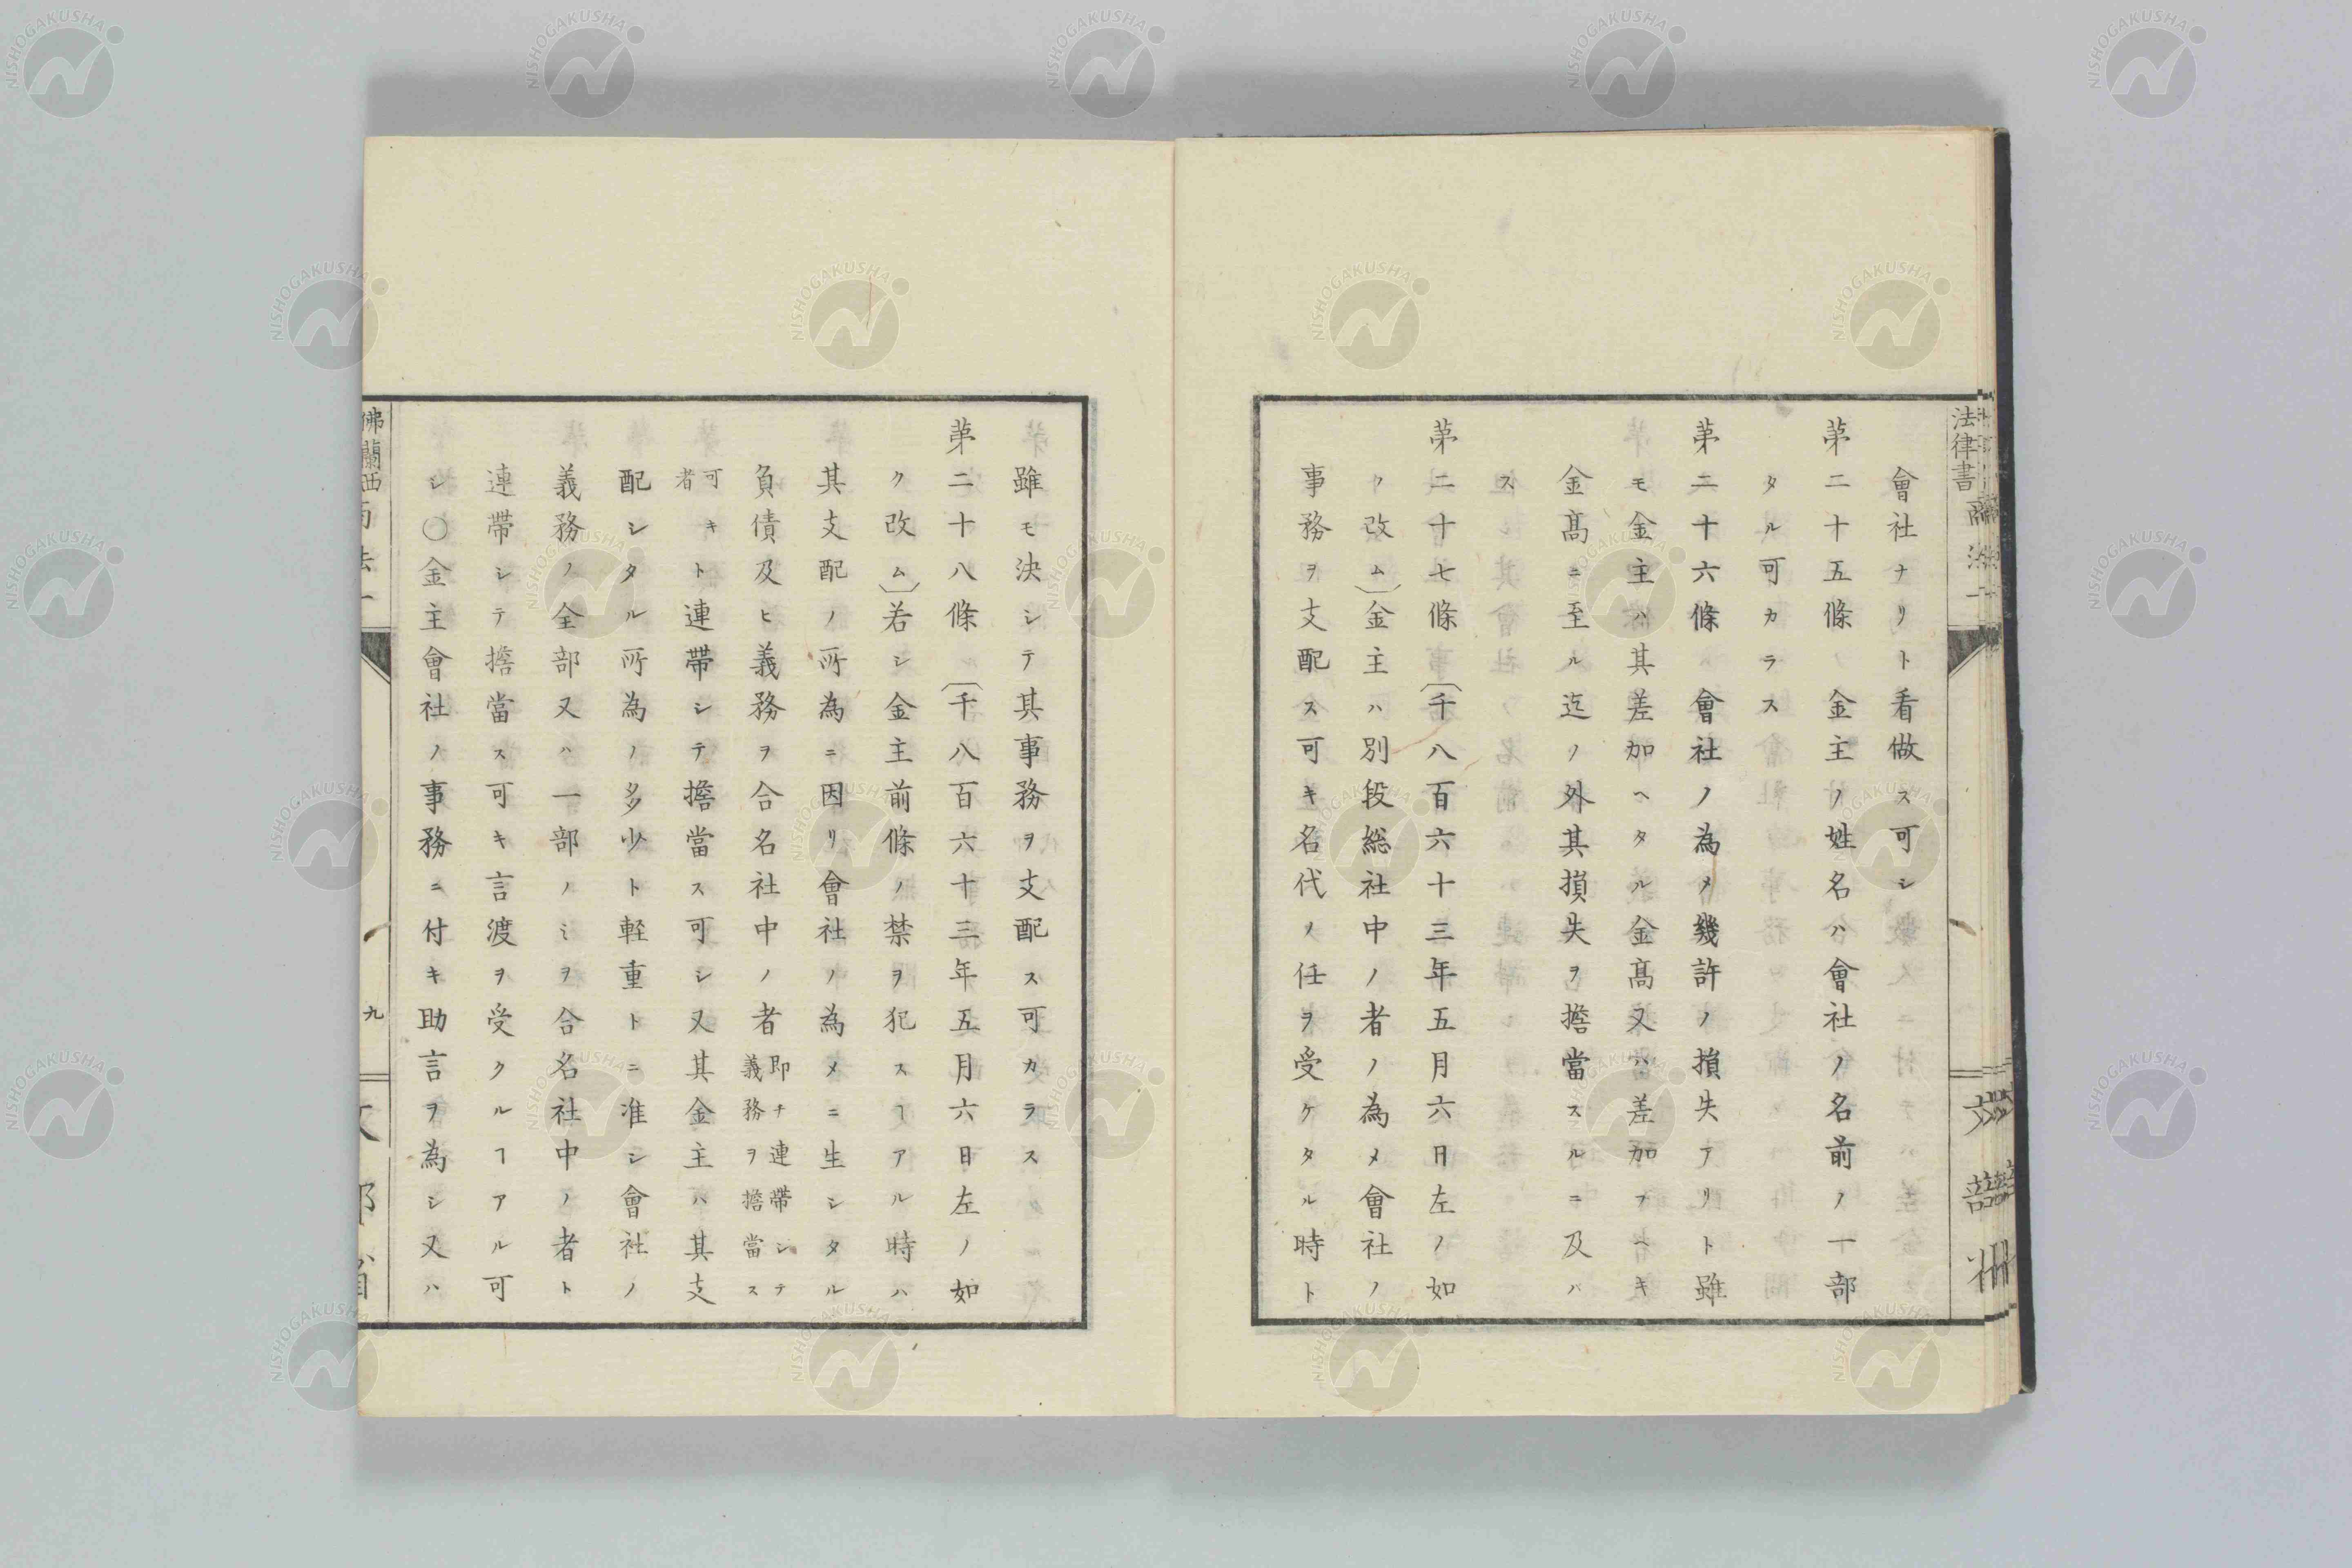 會社ナリト看做ス可シ
第二十五條 金主ノ姓名ハ會社ノ名前ノ一部
タル可カラス
第二十六條 會社ノ為メ幾許ノ損失アリト雖
モ金主ハ其差加ヘタル金髙又ハ差加フヘキ
金髙ニ至ル迄ノ外其損失ヲ擔當スルニ及ハ
ス
第二十七條〔千八百六十三年五月六日左ノ如
ク改ム〕金主ハ別段総社中ノ者ノ為メ會社ノ
事務ヲ支配ス可キ名代ノ任ヲ受ケタル時ト
雖モ决シテ其事務ヲ支配ス可カラス
第二十八條〔千八百六十三年五月六日左ノ如
ク改ム〕若シ金主前條ノ禁ヲ犯スヿアル時ハ
其支配ノ所為ニ因リ會社ノ為メニ生シタル
負債及ヒ義務ヲ合名社中ノ者即チ連帶シテ義務ヲ擔當ス
可キ者ト連帶シテ擔當ス可シ又其金主ハ其支
配シタル所為ノ多少ト軽重トニ准シ會社ノ
義務ノ全部又ハ一部ノミヲ合名社中ノ者ト
連帶シテ擔當ス可キ言渡ヲ受クルヿアル可
シ〇金主會社ノ事務ニ付キ助言ヲ為シ又ハ
法律書
佛蘭西商法一
九
文部省
NISHOGAKUSHA